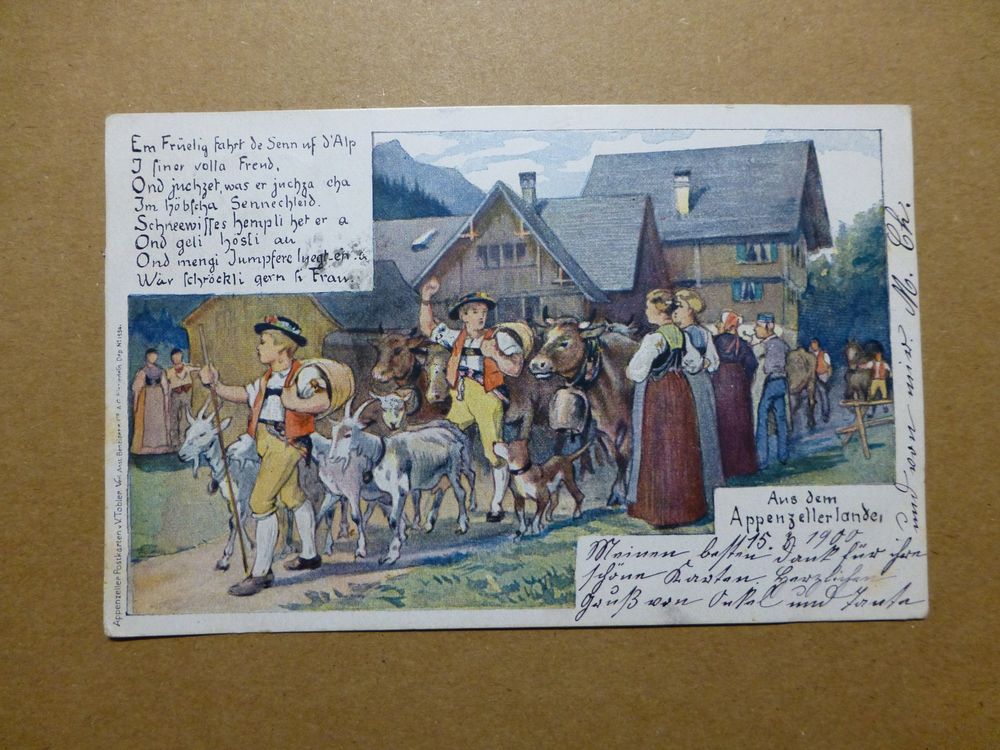 Em Früelig fahrt de Senn uf d'Alp
I sinor volla Freud,
Ond juchzet, was er juchza cha
Im höbscha Sennechleid.
Schneewisses hempli het er a
Ond geli hösli au
Ond mengi Jumpfere
Wär schröckli gern si Frau.
Appenzeller Postkarten v. V. Tobler.
Aus dem
Appenzellerlande,
15. 1900
Meinen besten Dank für ihre
schöne Karten. Herzlichen
Gruß von Onkel und Tante
und von mir. M. Ch.